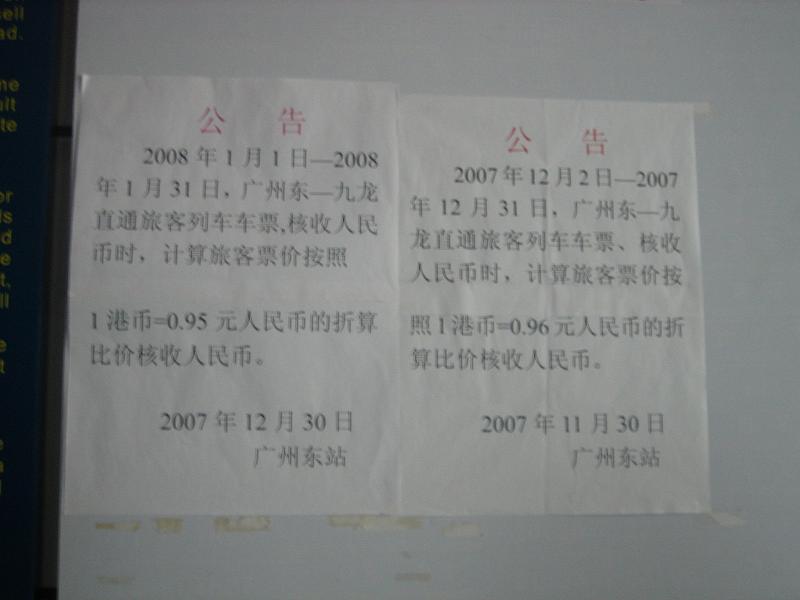 公 告
2008 年 1 月 1 日—2008
年 1 月 31 日，广州东—九龙
直通旅客列车车票,核收人民
币时，计算旅客票价按照
1 港币=0.95 元人民币的折算
比价核收人民币。
2007 年 12 月 30 日
广州东站
公 告
2007 年 12 月 2 日—2007
年 12 月 31 日，广州东—九
龙直通旅客列车车票、核收
人民币时，计算旅客票价按
照 1 港币=0.96 元人民币的折
算比价核收人民币。
2007 年 11 月 30 日
广州东站